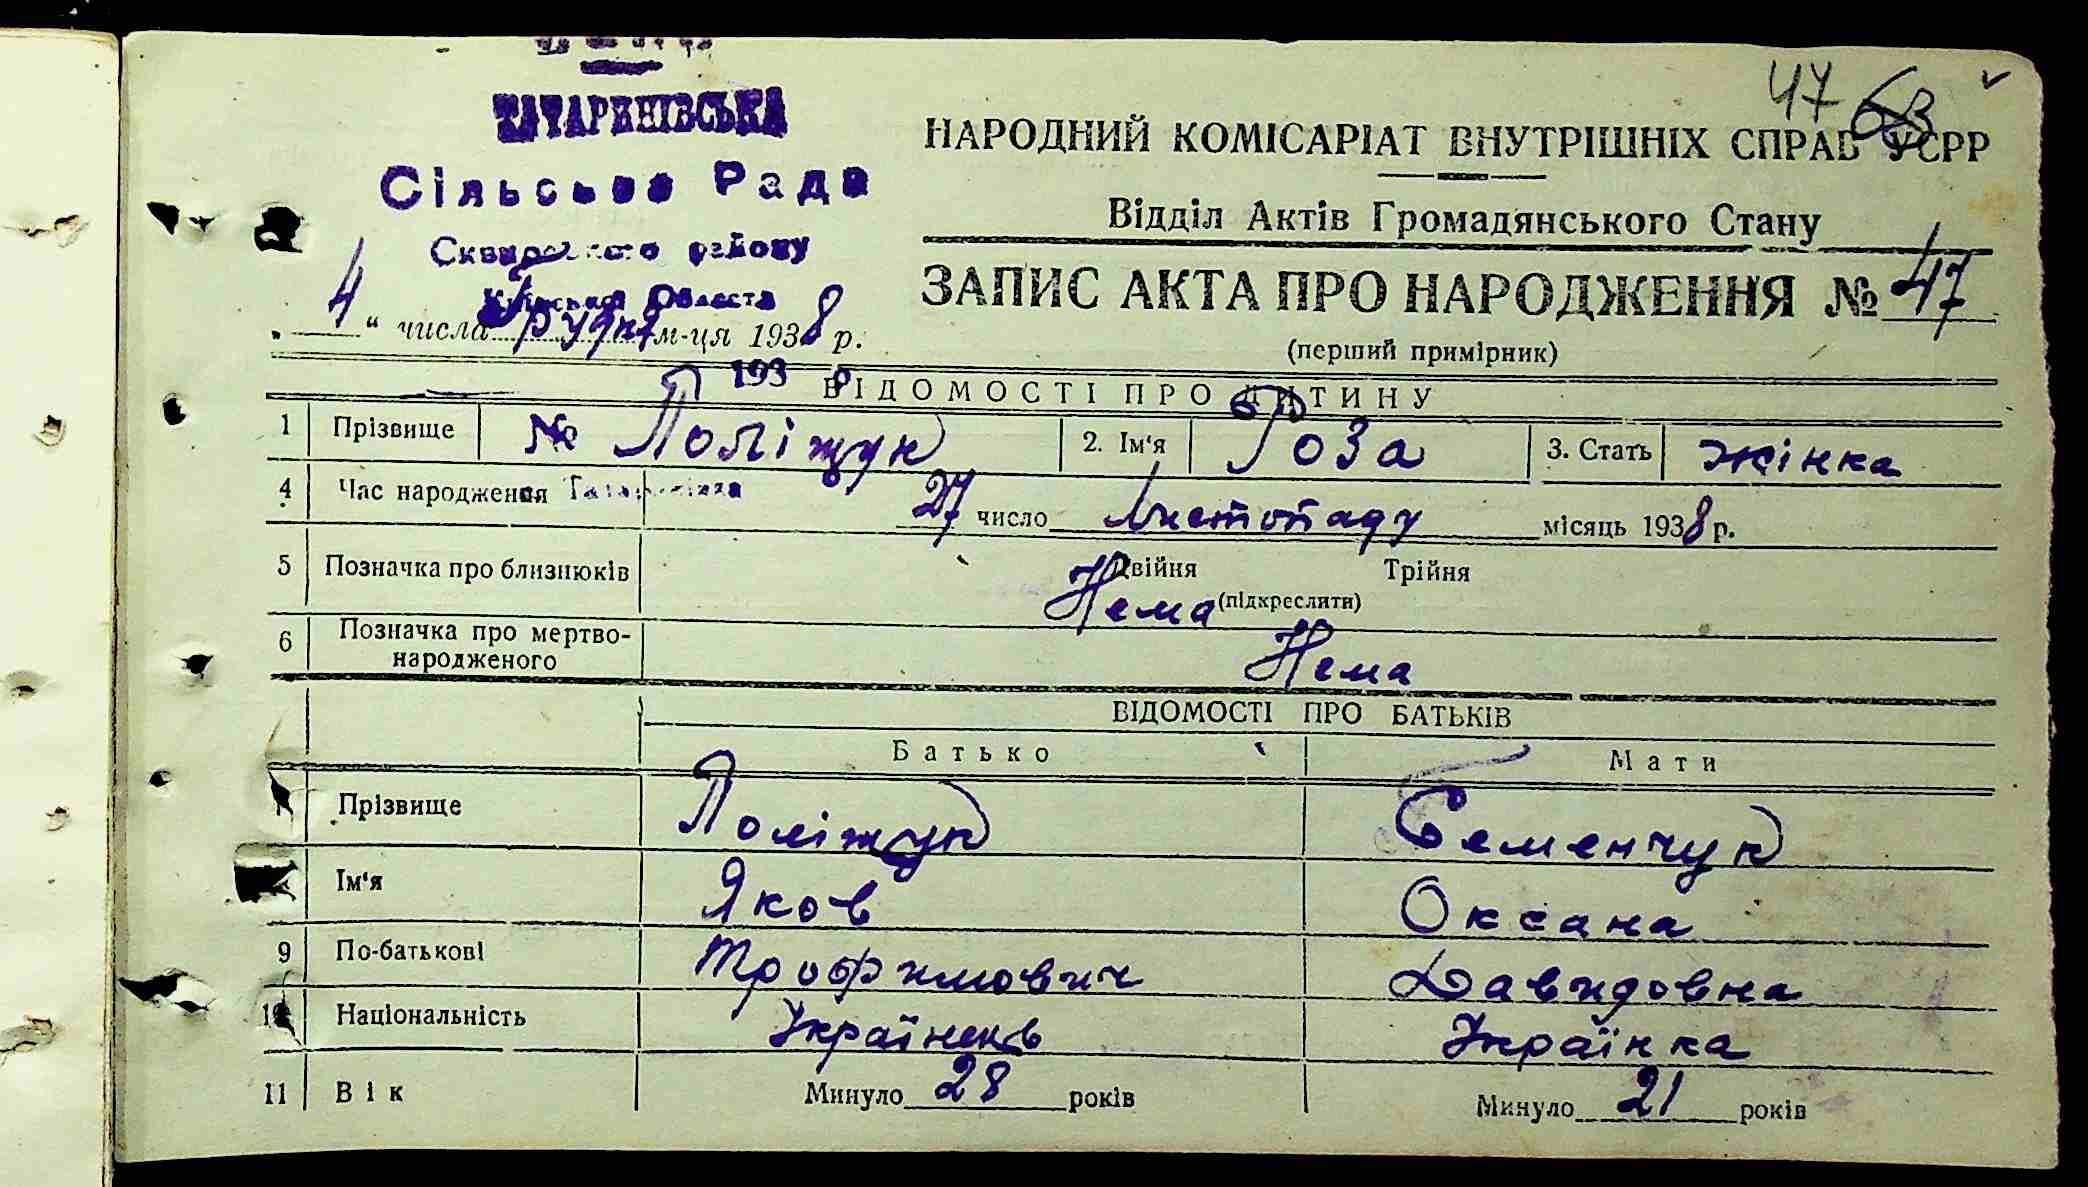 ТАТАРИНІВСЬКА
Сільська Рада
Сквирського району
Київської Області
47 63
НАРОДНИЙ КОМІСАРІАТ ВНУТРІШНІХ СПРАВ УСРР
Відділ Актів Громадянського Стану
ЗАПИС АКТА ПРО НАРОДЖЕННЯ № 47
(перший примірник)
„ 4 “ числа Грудня м-ця 1938 р.
193 8
ВІДОМОСТІ ПРО ДИТИНУ
1 Прізвище № Поліщук 2. Ім'я Роза 3. Стать жінка
4 Час народження 27 число Листопаду місяць 1938 р.
5 Позначка про близнюків Двійня Трійня
Нема (підкреслити)
6 Позначка про мертво-
народженого Нема
ВІДОМОСТІ ПРО БАТЬКІВ
Батько Мати
Прізвище Поліщук Семенчук
Ім'я Яков Оксана
9 По-батькові Трофимович Давидовна
10 Національність Українець Українка
11 Вік Минуло 28 років Минуло 21 років